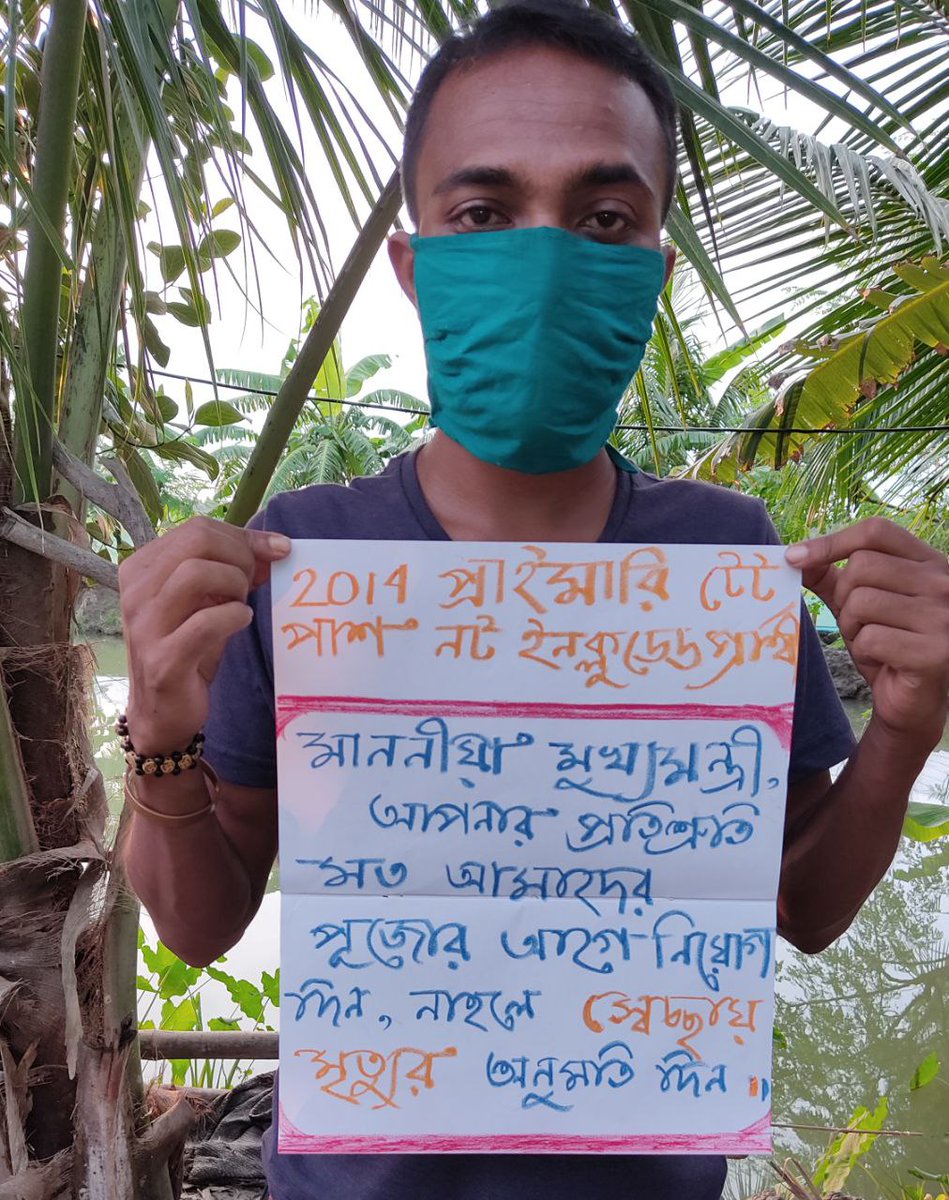 2014 প্রাইমারি টেট
পাশ নট ইনক্লুডেড প্রার্থী
মাননীয়া মুখ্যমন্ত্রী,
আপনার প্রতিশ্রুতি
মত আমাদের
পূজোর আগে নিয়োগ
দিন, নাহলে স্বেচ্ছায়
মৃত্যুর অনুমতি দিন।।